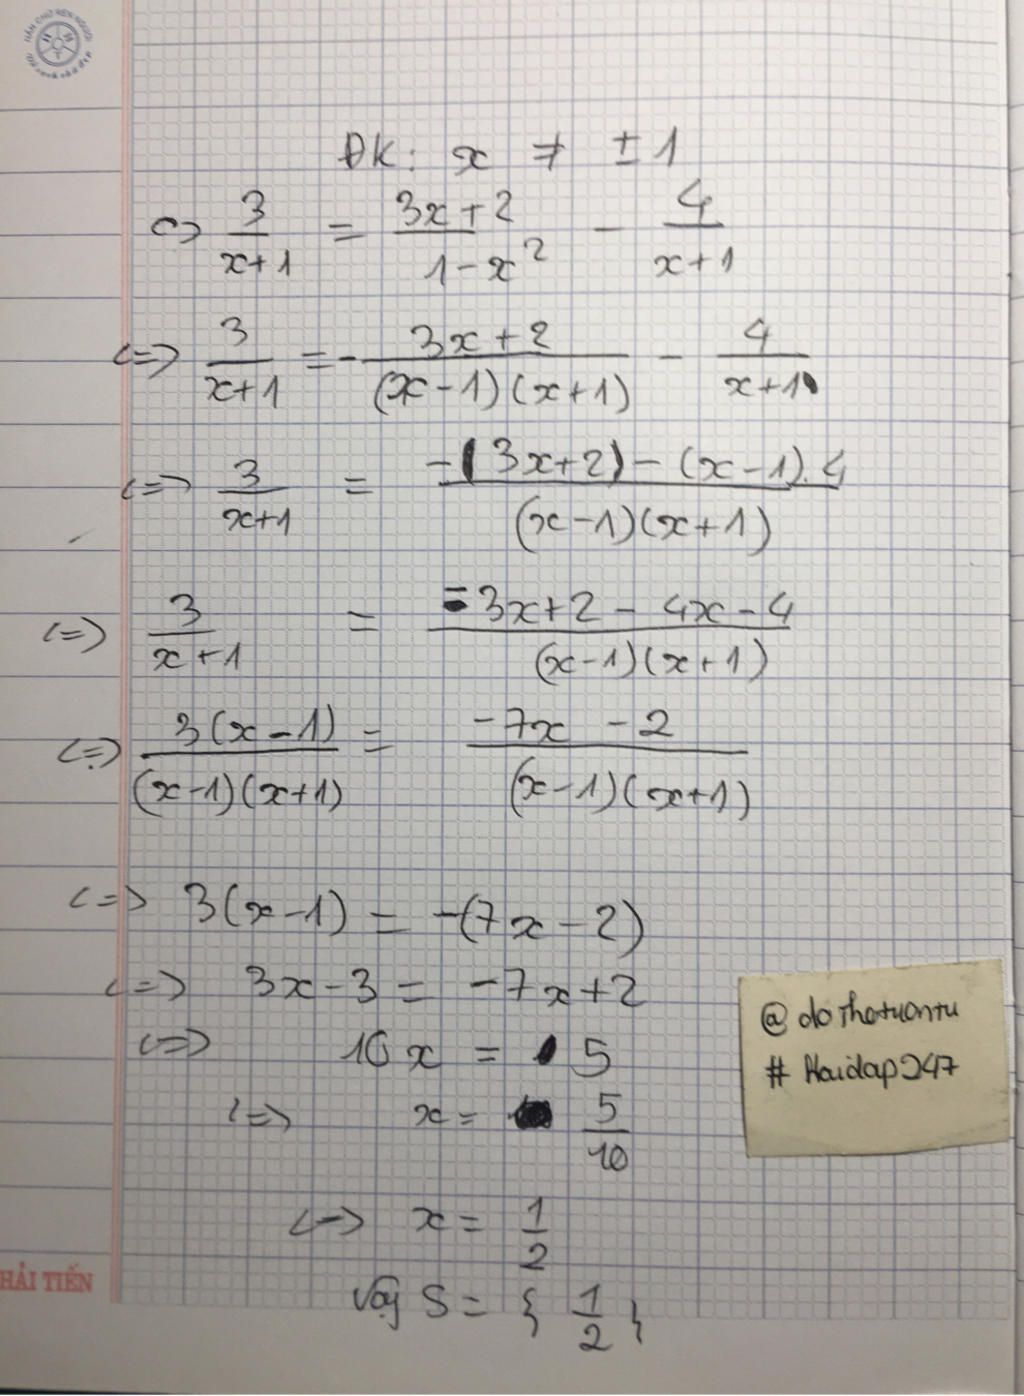 ĐK: x ≠ ±1
<=> 3/(x+1) = (3x+2)/(1-x²) - 4/(x+1)
<=> 3/(x+1) = - (3x+2)/((x-1)(x+1)) - 4/(x+1)
<=> 3/(x+1) = (-(3x+2)-(x-1).4)/((x-1)(x+1))
<=> 3/(x+1) = (-3x+2-4x-4)/((x-1)(x+1))
<=> 3(x-1)/((x-1)(x+1)) = (-7x-2)/((x-1)(x+1))
<=> 3(x-1) = -(7x-2)
<=> 3x-3 = -7x+2
<=> 10x = 5
<=> x = 5/10
<=> x = 1/2
Vậy S = { 1/2 }
@dothatuantu
# Hoidap247
HẢI TIẾN